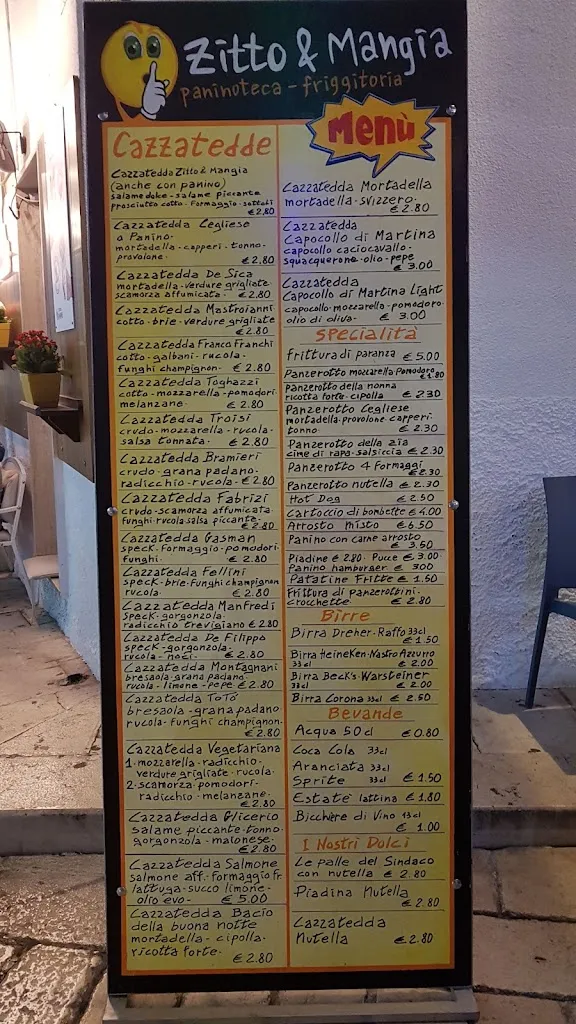 Zitto & Mangia
paninoteca - friggitoria
Menù
Cazzatedde
Cazzatedda Zitto & Mangia
(anche con panino)
salame dolce - salame piccante
prosciutto cotto - formaggio - sottoli
€ 2.80
Cazzatedda Legliese
o Panino
mortadella - capperi - tonno -
provolone. € 2.80
Cazzatedda De Sica
mortadella - verdure grigliate
scamorza affumicata. € 2.80
Cazzatedda Mastroianni
cotto - brie - verdure grigliate
€ 2.80
Cazzatedda Franco Franchi
cotto - galbani - rucola -
funghi champignon. € 2.80
Cazzatedda Tognazzi
cotto - mozzarella - pomodori
melanzane. € 2.80
Cazzatedda Troisi
crudo - mozzarella - rucola -
salsa tonnata. € 2.80
Cazzatedda Bramieri
crudo - grana padano -
radicchio - rucola - € 2.80
Cazzatedda Fabrizi
crudo - scamorza affumicata
funghi - rucola - salsa piccante.
€ 2.80
Cazzatedda Gasman
speck - formaggio - pomodori -
funghi. € 2.80
Cazzatedda Fellini
speck - brie - funghi champignon
rucola. € 2.80
Cazzatedda Manfredi
speck - gorgonzola -
radicchio trevigiano € 2.80
Cazzatedda De Filippo
speck - gorgonzola -
rucola - noci. € 2.80
Cazzatedda Montagnani
bresaola - grana padano
rucola - limone - pepe € 2.80
Cazzatedda Totò
bresaola - grana padano
rucola - funghi champignon.
€ 2.80
Cazzatedda Vegetariana
1. mozzarella - radicchio -
verdure grigliate - rucola.
2. scamorza - pomodori -
radicchio - melanzane.
€ 2.80
Cazzatedda Glicerio
salame piccante - tonno.
gorgonzola - maionese.
€ 2.80
Cazzatedda Salmone
salmone aff. - formaggio fr.
lattuga - succo limone -
olio evo - € 5.00
Cazzatedda Bacio
della buona notte
mortadella - cipolla -
ricotta forte. € 2.80
Cazzatedda Mortadella
mortadella - svizzero. € 2.80
Cazzatedda
Capocollo di Martina
capocollo caciocavallo -
squacquerone - olio - pepe
€ 3.00
Cazzatedda
Capocollo di Martina Light
capocollo - mozzarella - pomodoro -
olio di oliva - € 3.00
Specialità
frittura di paranza € 5.00
Panzerotto mozzarella Pomodoro
€ 1.80
Panzerotto della nonna
ricotta forte - cipolla € 2.30
Panzerotto Legliese
mortadella - provolone - capperi -
tonno € 2.30
Panzerotto della zia
cime di rapa - salsiccia € 2.30
Panzerotto 4 Formaggi
€ 2.30
Panzerotto nutella € 2.30
Hot Dog € 2.50
Cartoccio di bombette € 4.00
Arrosto misto € 6.50
Panino con carne arrosto
€ 3.50
Piadine € 2.80 - Pucce € 3.00
Panino hamburger € 3.00
Patatine Fritte € 1.50
Frittura di panzerottini -
crocchette € 2.80
Birre
Birra Dreher - Raffo 33cl
€ 1.50
Birra Heineken - Nastro Azzurro
33cl € 2.00
Birra Beck's - Warsteiner
33cl € 2.00
Birra Corona 33cl € 2.50
Bevande
Acqua 50cl € 0.80
Coca Cola 33cl
Aranciata 33cl
Sprite 33cl € 1.50
Estate lattina € 1.80
Bicchiere di Vino 13cl
€ 1.00
I Nostri Dolci
Le palle del Sindaco
con nutella € 2.80
Piadina Nutella
€ 2.80
Cazzatedda
Nutella € 2.80